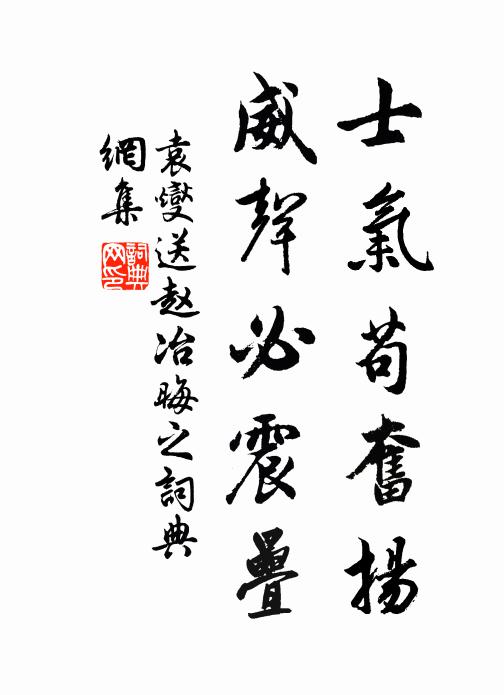 士氣苟奮揚
威聲必震疊
袁燮送赵冶晦之詞典
網集
詞典
网印